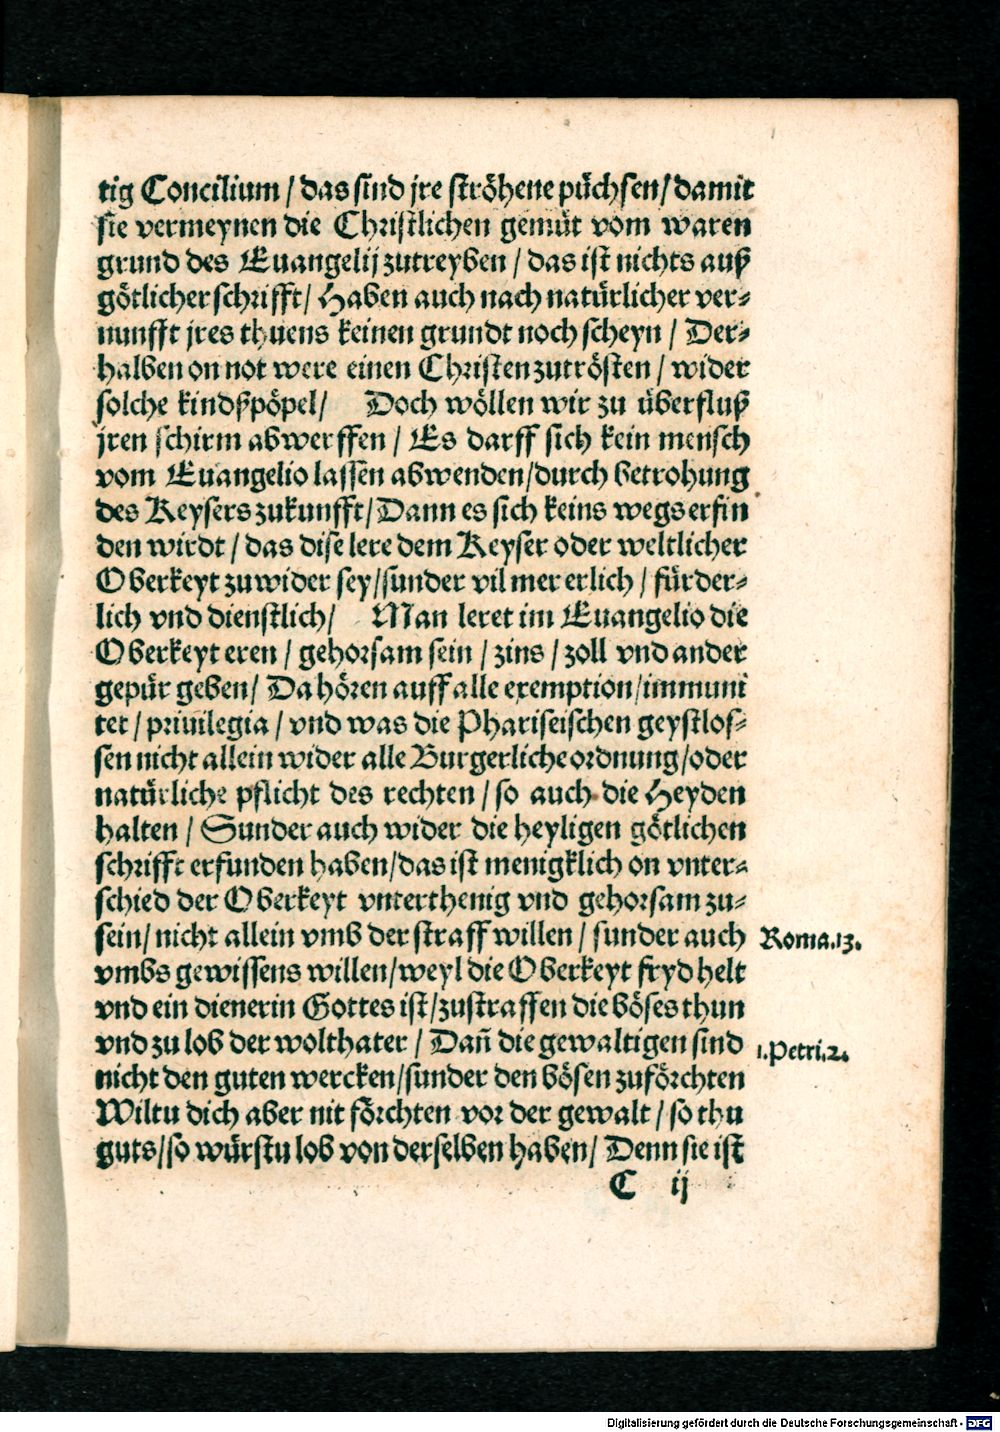 tig Concilium / das sind jre ströhene püchsen / damit
sie vermeynen die Christlichen gemüt vom waren
grund des Euangelij zutreyben / das ist nichts auß
götlicher schrifft / Haben auch nach natürlicher ver-
nunfft jres thuens keinen grundt noch scheyn / Der-
halben on not were einen Christen zutrösten / wider
solche kindßpöpel / Doch wöllen wir zu überfluß
jren schirm abwerffen / Es darff sich kein mensch
vom Euangelio lassen abwenden / durch betrohung
des Keysers zukunfft / Dann es sich keins wegs erfin
den wirdt / das dise lere dem Keyser oder weltlicher
Oberkeyt zuwider sey / sunder vil mer erlich / fürder-
lich vnd dienstlich / Man leret im Euangelio die
Oberkeyt eren / gehorsam sein / zins / zoll vnd ander
gepür geben / Da hören auff alle exemption / immuni
tet / priuilegia / vnd was die Phariseischen geystlos-
sen nicht allein wider alle Burgerliche ordnung / oder
natürliche pflicht des rechten / so auch die Heyden
halten / Sunder auch wider die heyligen götlichen
schrifft erfunden haben / das ist menigklich on vnter-
schied der Oberkeyt vnterthenig vnd gehorsam zu-
sein / nicht allein vmb der straff willen / sunder auch
Roma.13.
vmbs gewissens willen / weyl die Oberkeyt fryd helt
vnd ein dienerin Gottes ist / zustraffen die böses thun
vnd zu lob der wolthater / Dañ die gewaltigen sind
1.Petri.2.
nicht den guten wercken / sunder den bösen zuförchten
Wiltu dich aber nit förchten vor der gewalt / so thu
guts / so würstu lob von derselben haben / Denn sie ist
C ij
Digitalisierung gefördert durch die Deutsche Forschungsgemeinschaft - DFG